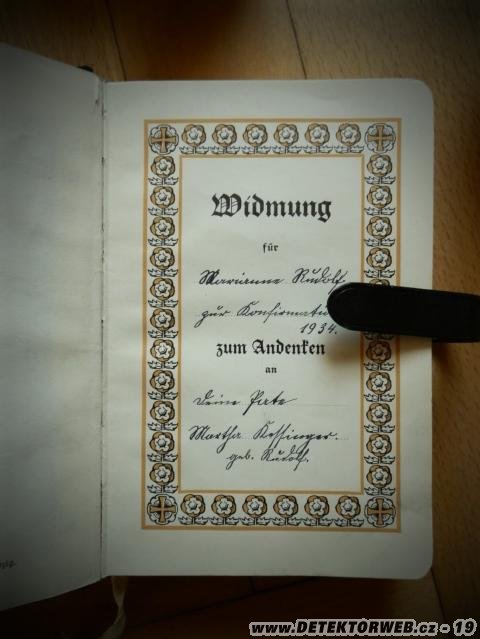 Widmung
für
Marianne Rudolf
zur Konfirmation
1934.
zum Andenken
an
Deine Pate
Martha Kissinger.
geb. Rudolf.
www.DETEKTORWEB.cz - 19